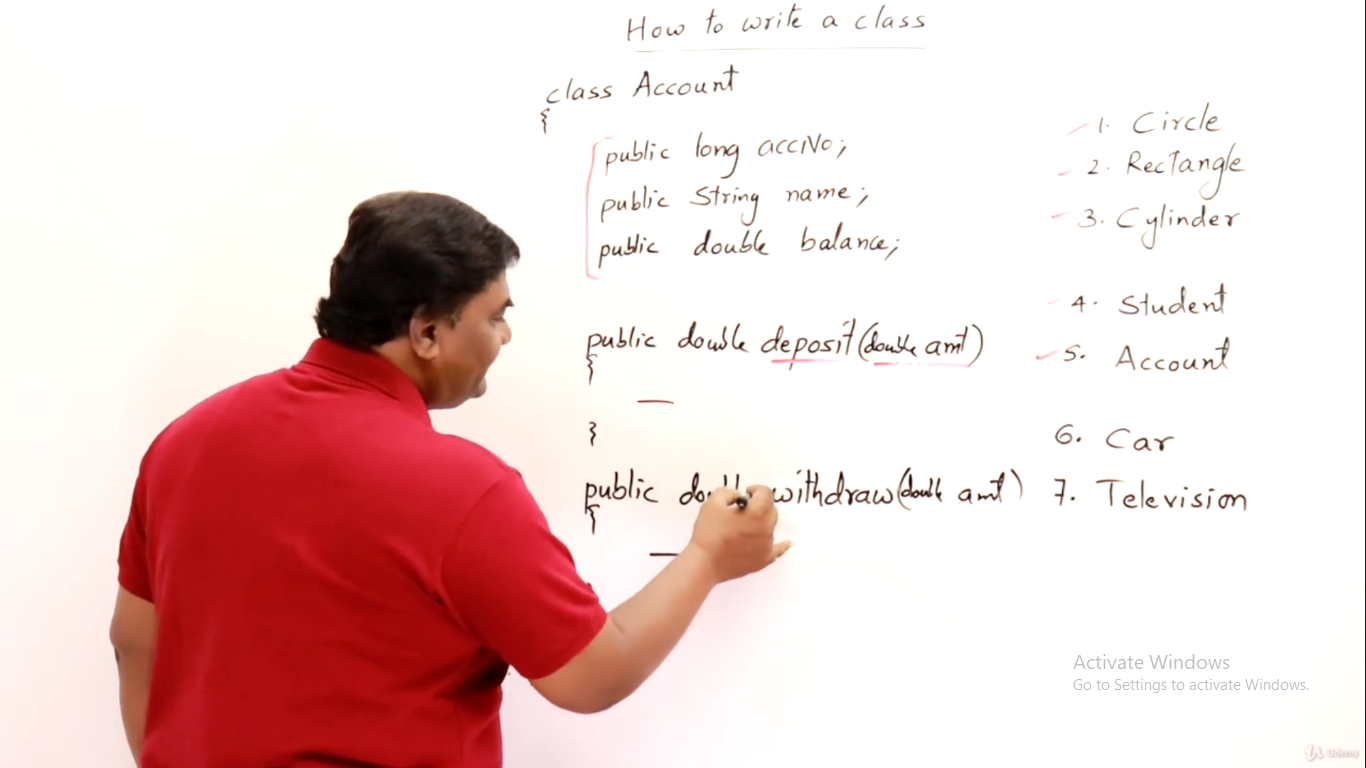 How to write a class
class Account
{
public long accNo;
public String name;
public double balance;
public double deposit(double amt)
{
}
public double withdraw(double amt)
{
1. Circle
2. Rectangle
3. Cylinder
4. Student
5. Account
6. Car
7. Television
Activate Windows
Go to Settings to activate Windows.
Udemy